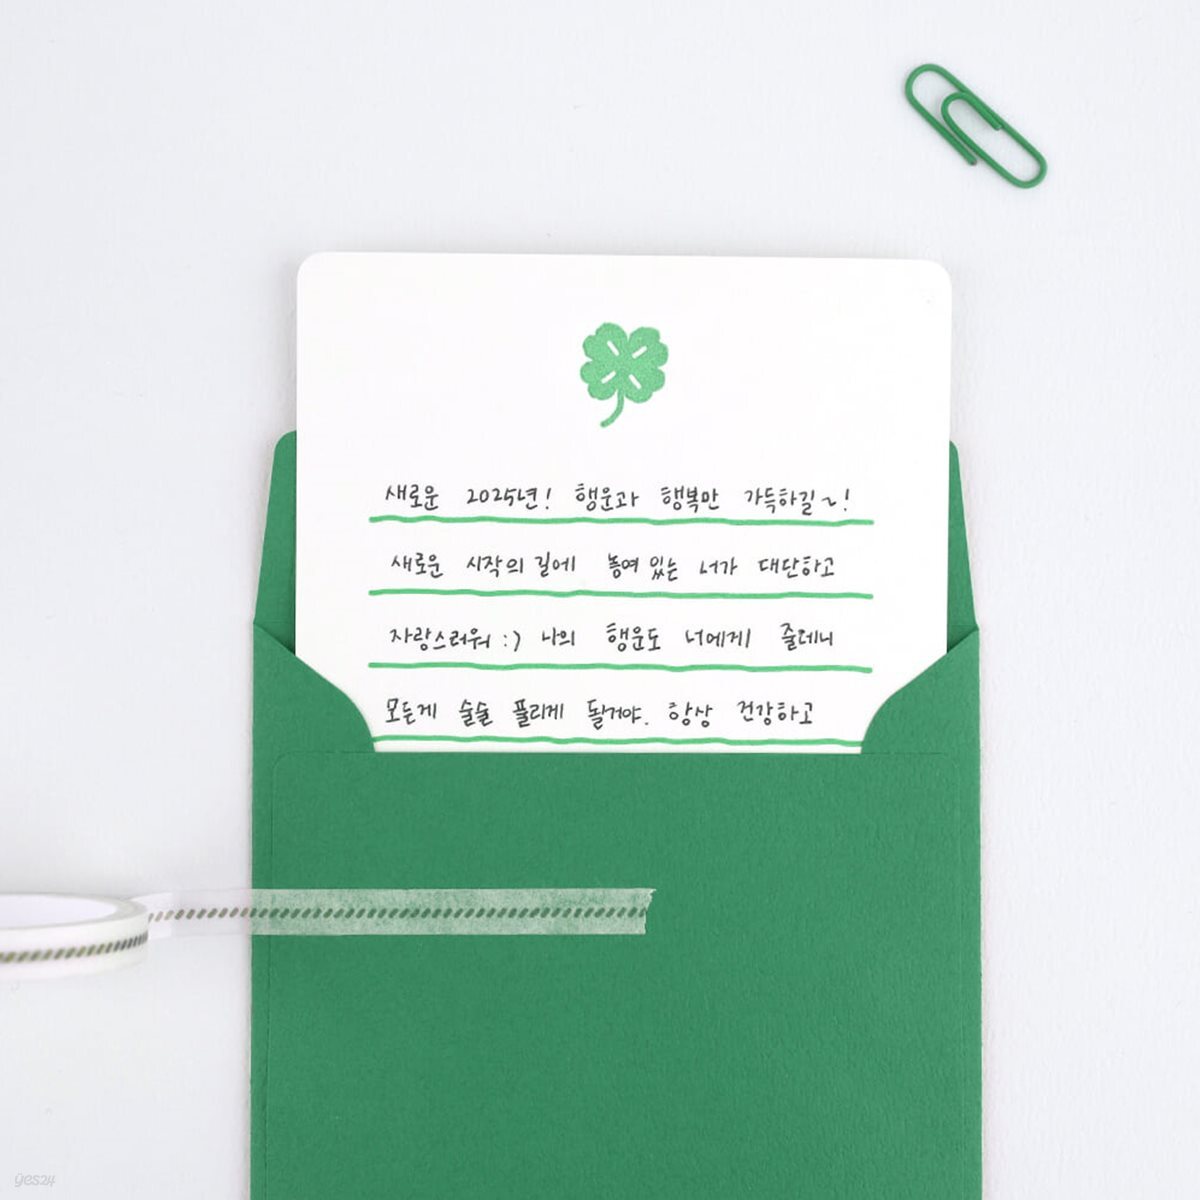 새로운 2025년! 행운과 행복만 가득하길~!
새로운 시작의 길에 놓여 있는 너가 대단하고
자랑스러워 :) 나의 행운도 너에게 줄테니
모든게 술술 풀리게 될거야. 항상 건강하고
yes24